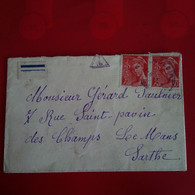 Monsieur Gérard Gauthier
7 Rue Saint-pavin
des Champs Le Mans
Sarthe